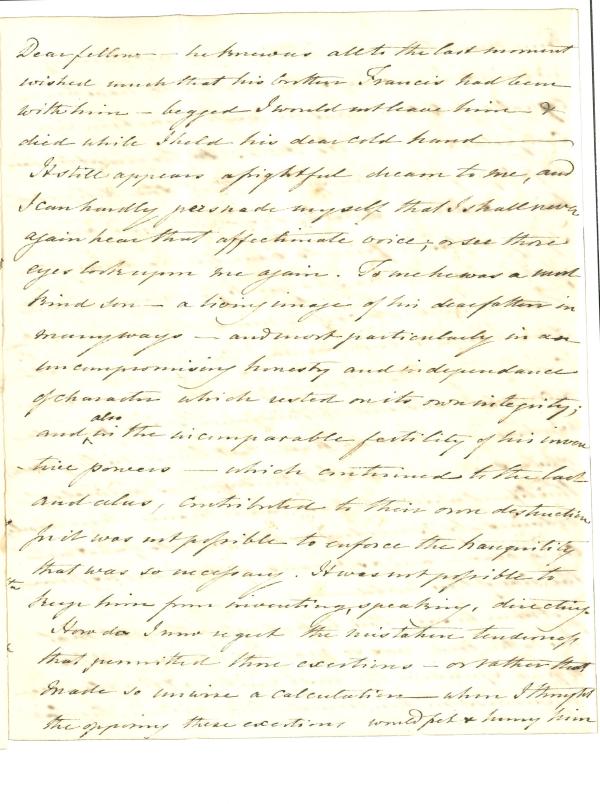 Dear fellow – he knew us all to the last moment
wished much that his brother Francis had been
with him – begged I would not leave him &
died while I held his dear cold hand —
It still appears a frightful dream to me, and
I can hardly persuade myself that I shall never
again hear that affectionate voice, or see those
eyes look upon me again. To me he was a most
kind son – a living image of his dear father in
many ways – and most particularly in an
uncompromising honesty and independance
of character which rested on its own integrity;
and also in the incomparable fertility of his inven
-tive powers – which continued to the last
and alas, contributed to their own destruction
for it was not possible to enforce the tranquility
that was so necessary. It was not possible to
keep him from inventing, speaking, directing
How do I now regret the mistaken tenderness
that permitted those exertions – or rather that
made so unwise a calculation – when I thought
the opposing these exertions would fret & hurry him